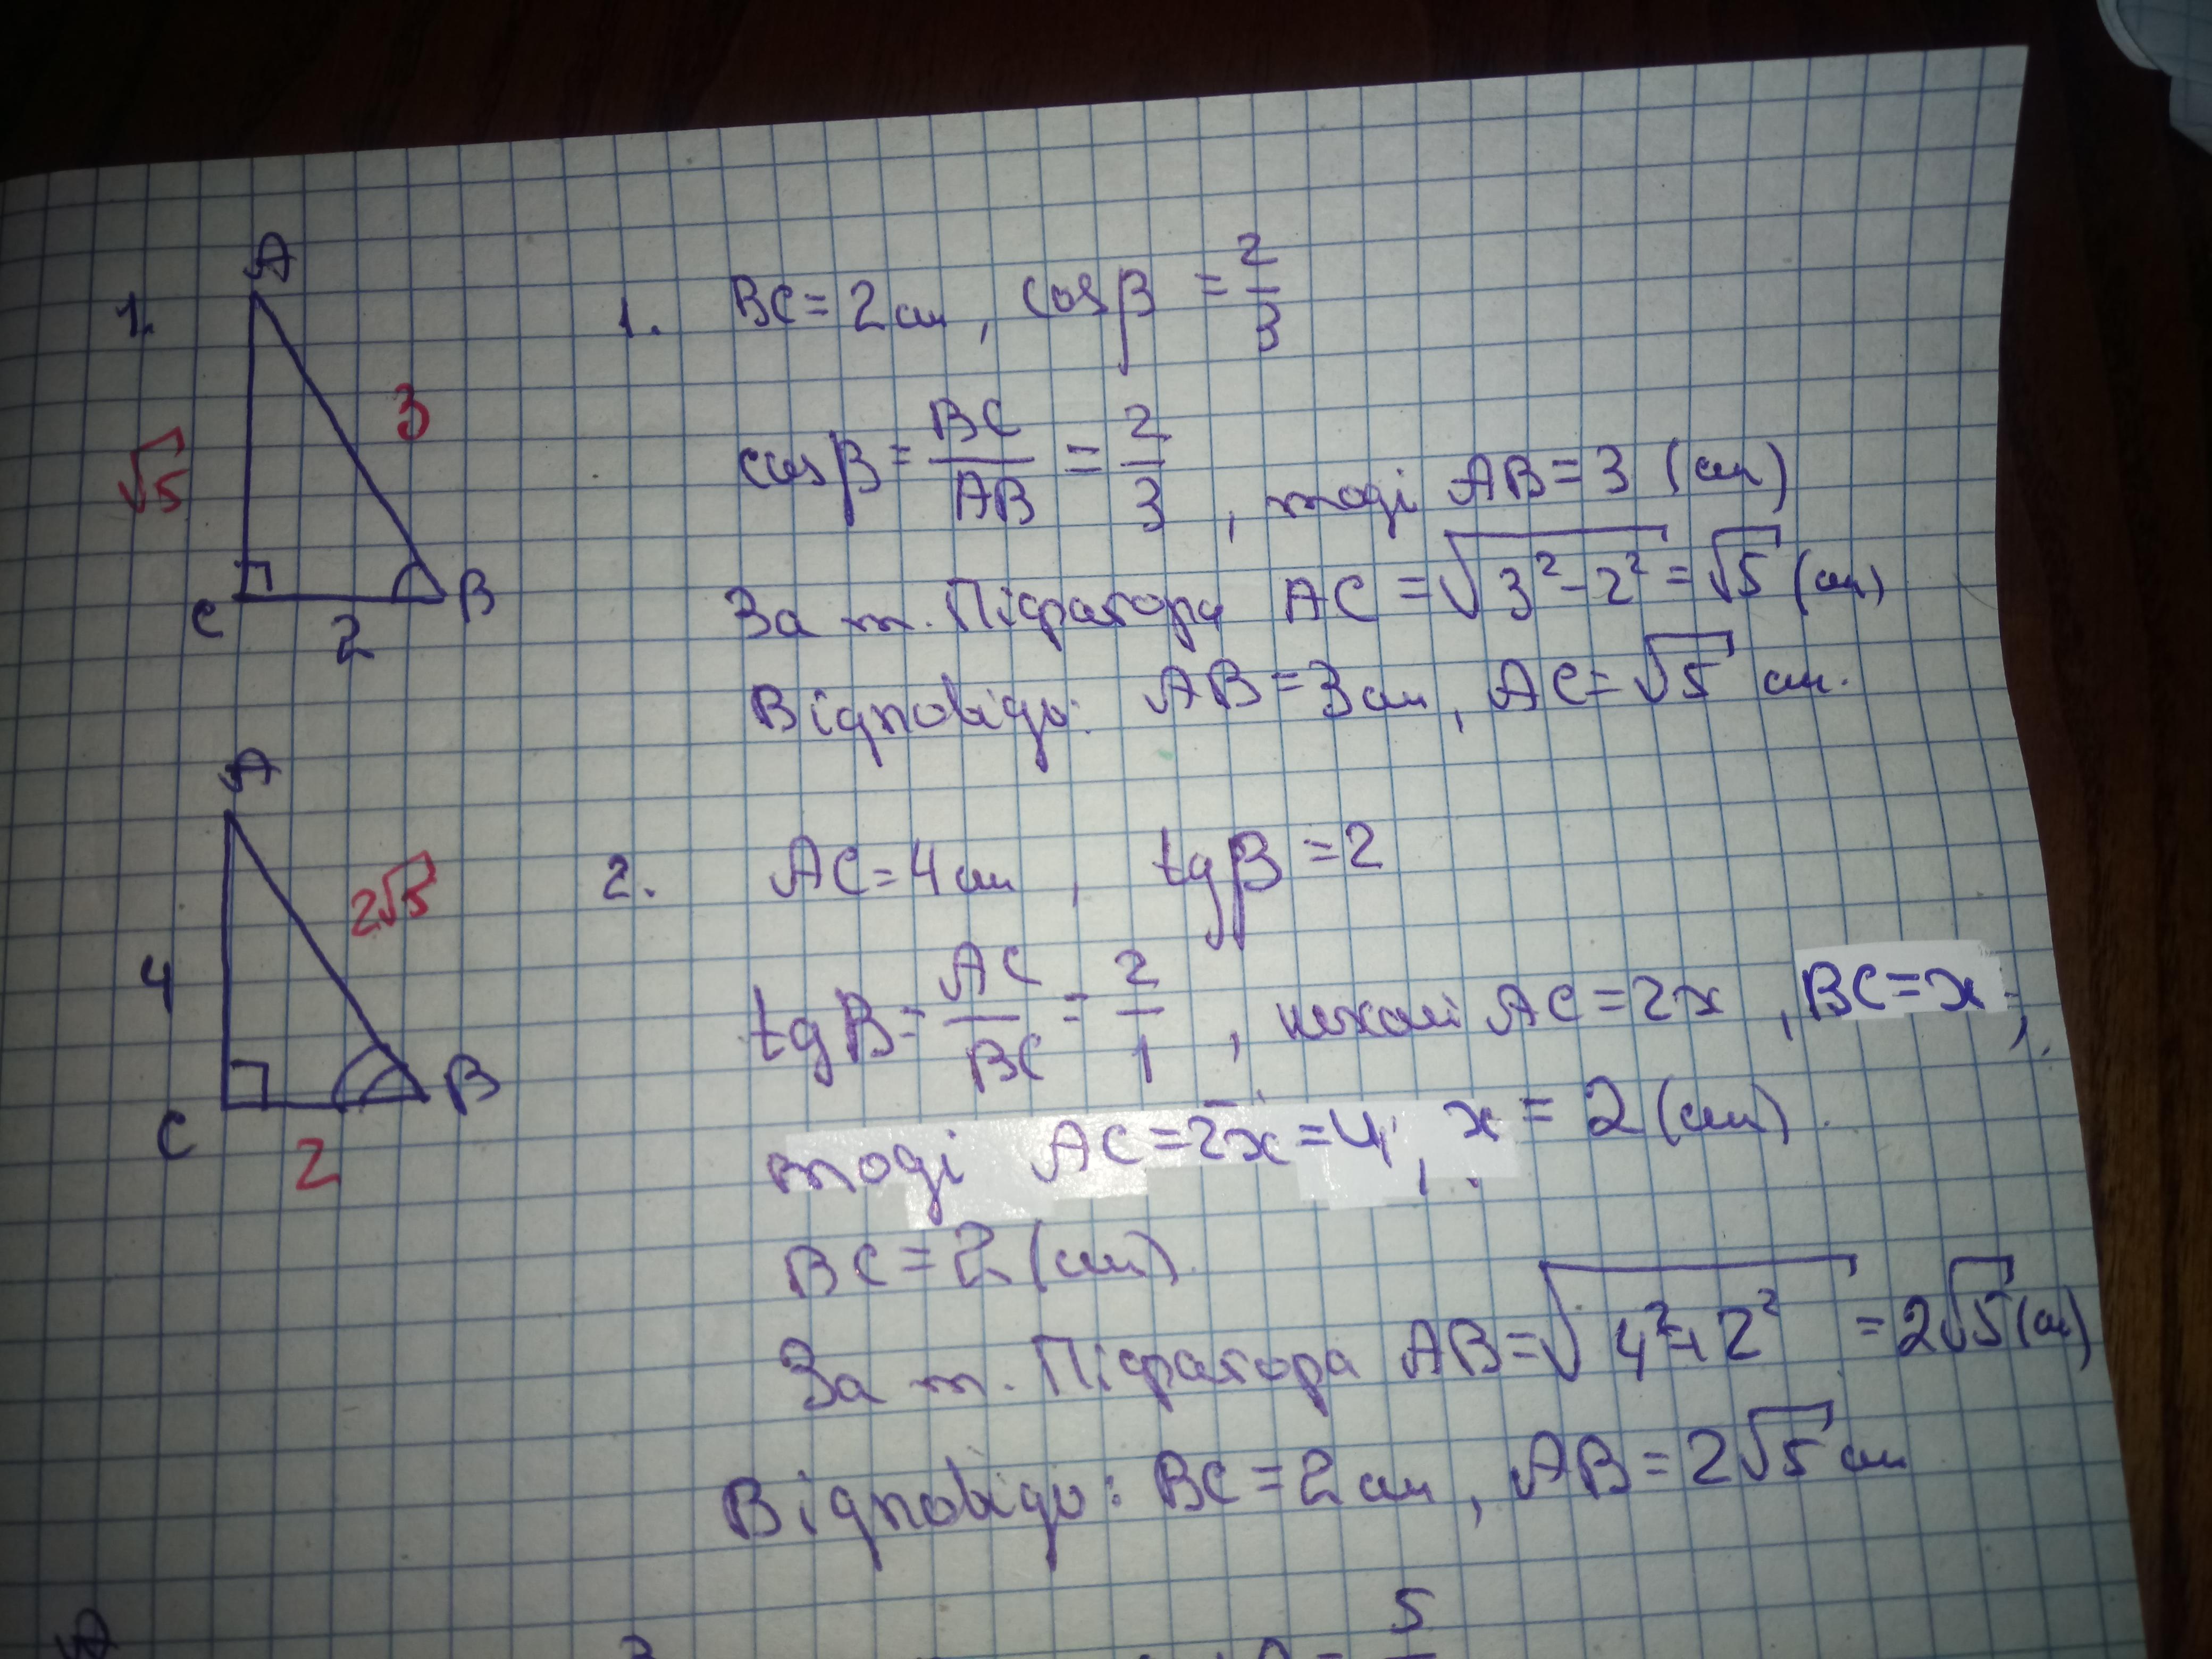 1.
A
3
√5
C
2
B
1. BC = 2 см, cos β = 2/3
cos β = BC/AB = 2/3, тоді AB = 3 (см)
За т. Піфагора AC = √(3² - 2²) = √5 (см)
Відповідь: AB = 3 см, AC = √5 см.
A
2√5
4
C
2
B
2. AC = 4 см, tg β = 2
tg B = AC/BC = 2/1, нехай AC = 2x, BC = x,
тоді AC = 2x = 4, x = 2 (см).
BC = 2 (см).
За т. Піфагора AB = √(4² + 2²) = 2√5 (см)
Відповідь: BC = 2 см, AB = 2√5 см
A
3.
A = 5